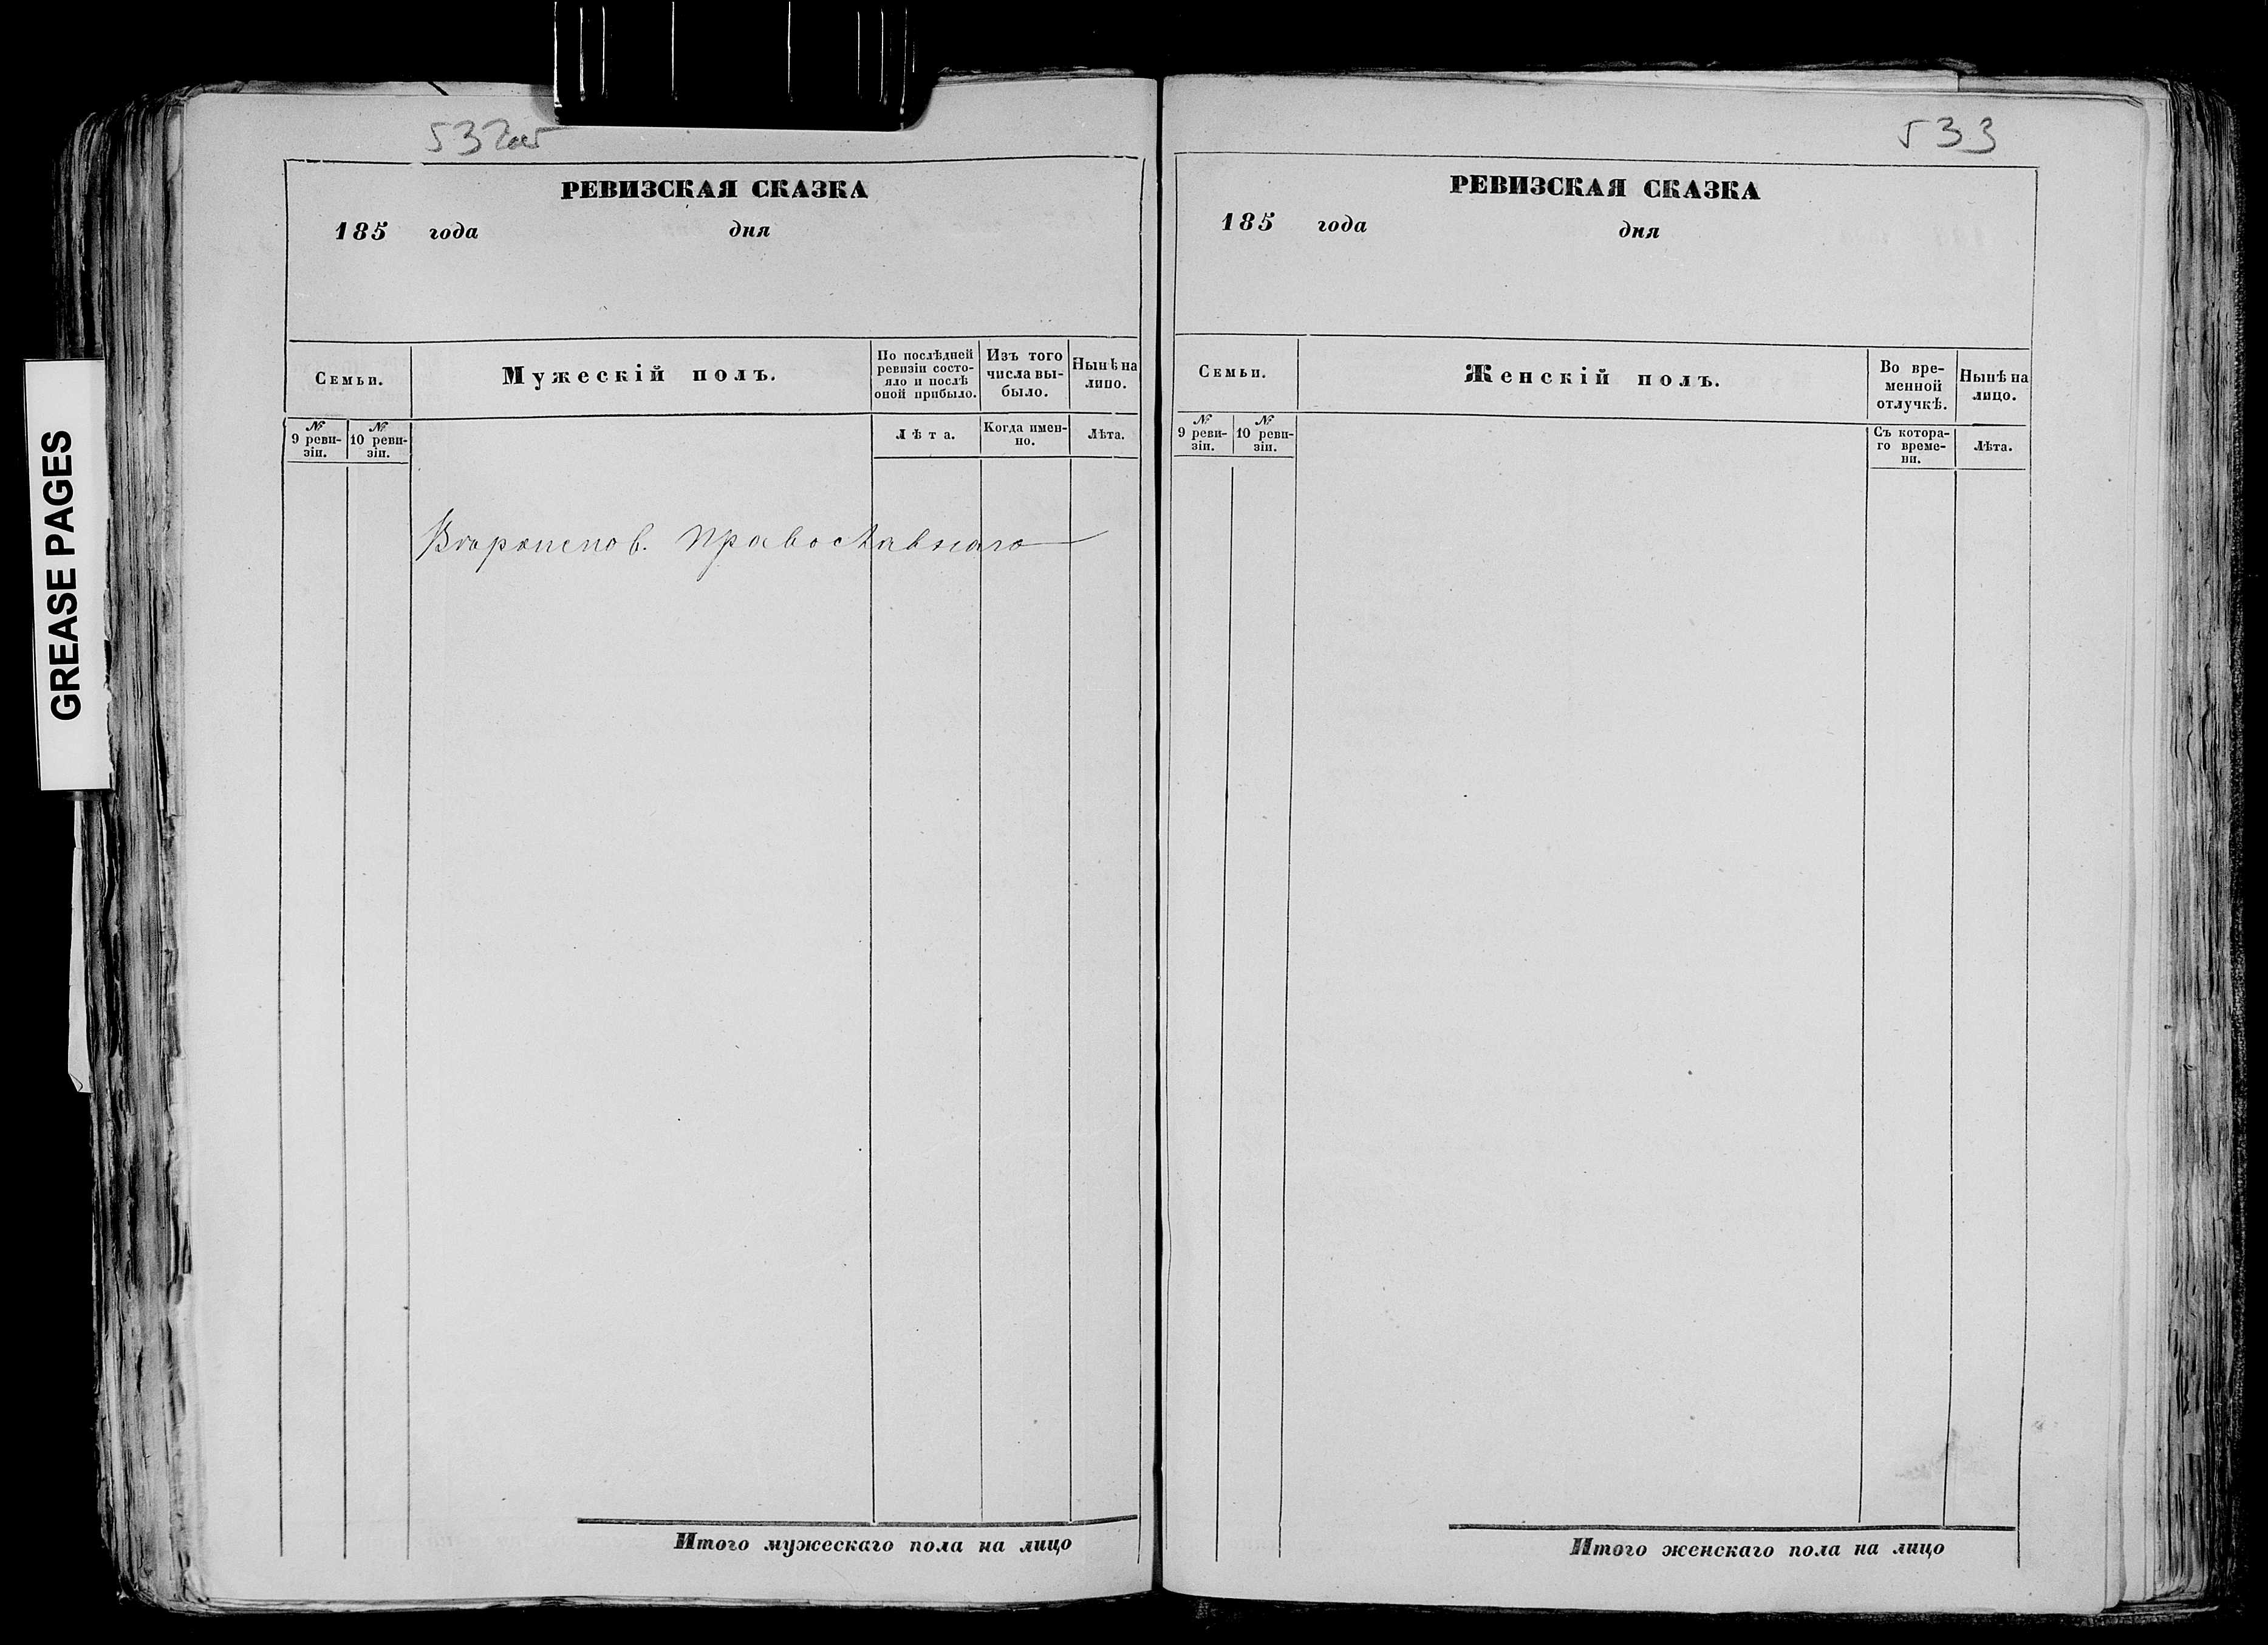 GREASE PAGES
532об
РЕВИЗСКАЯ СКАЗКА
185 года дня
Семьи.
Мужескій полъ.
По послѣдней
ревизіи состо-
яло и послѣ
оной прибыло.
Изъ того
числа вы-
было.
Нынѣ на
лицо.
№
9 реви-
зіи.
№
10 реви-
зіи.
Лѣта.
Когда имен-
но.
Лѣта.
Вѣроиспов. Православнаго
Итого мужескаго пола на лицо
533
РЕВИЗСКАЯ СКАЗКА
185 года дня
Семьи.
Женскій полъ.
Во вре-
менной
отлучкѣ.
Нынѣ на
лицо.
№
9 реви-
зіи.
№
10 реви-
зіи.
Съ котора-
го време-
ни.
Лѣта.
Итого женскаго пола на лицо